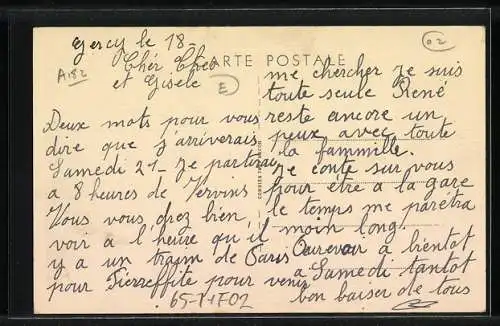 Gercy le 18-
Cher Theo
et Gisele
CARTE POSTALE
A182
E
02
Deux mots pour vous
dire que j'arriverais
Samedi 21- Je partirai
a 8 heures de Vervins
Vous vous drez bien
voir à l'heure qu'il
y a un traim de Paris
pour Pierreffite pour venir
me chercher Je suis
toute seule René
reste ancore un
peux avec toute
la fammille.
Je conte sur vous
pour être a la gare
le temps me parêtra
moin long.
Aurevoir a bientôt
a Samedi tantot
bon baiser de tous
65-T-1F02